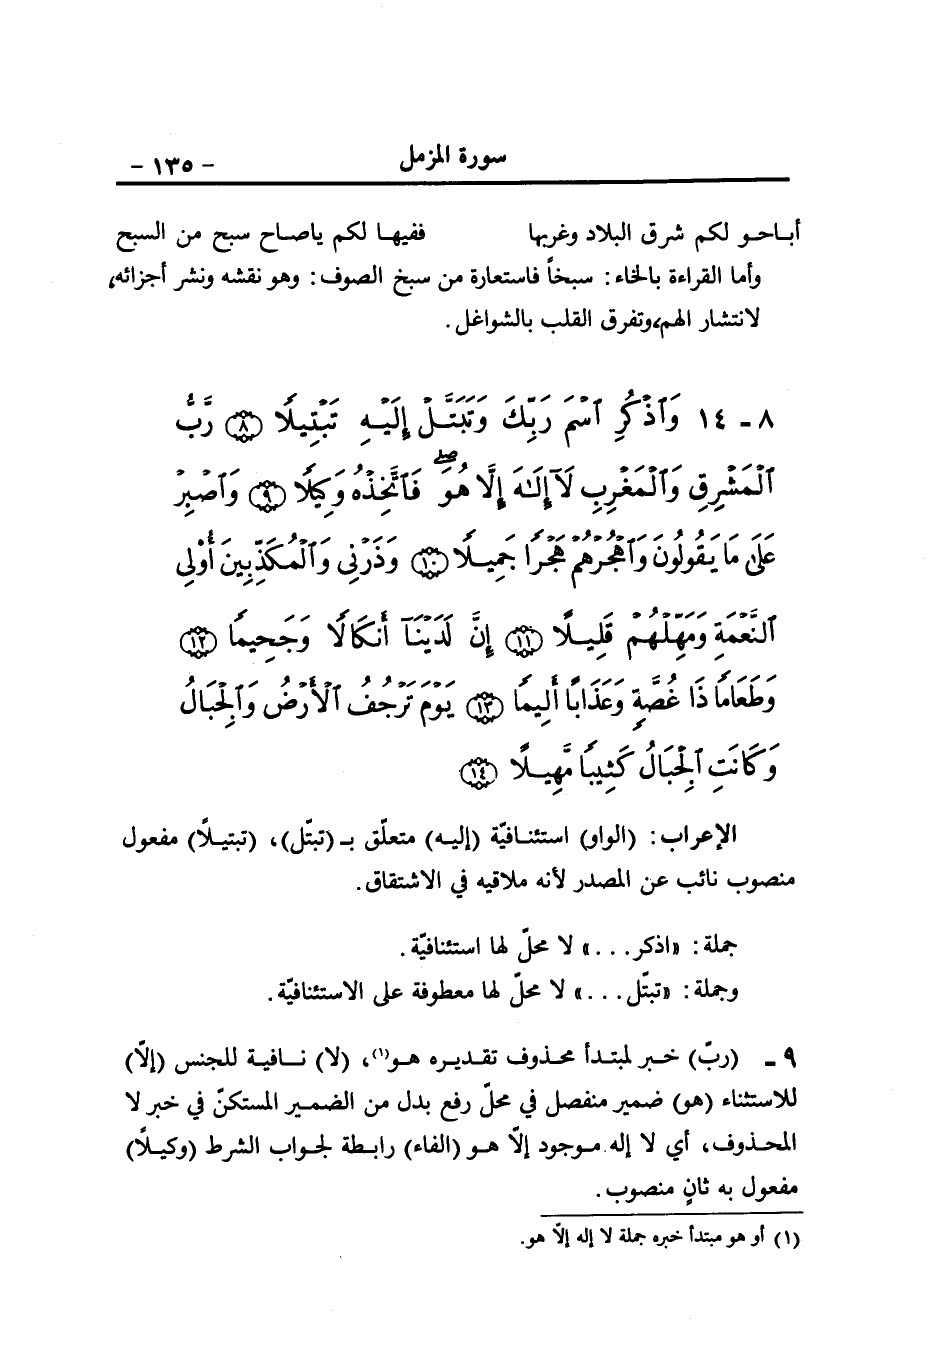 سورة المزمل
- ١٣٥ -
أبـاحـو لكم شرق البلاد وغربها ففيهـا لكم ياصـاح سبح من السبح
وأما القراءة بالخاء: سبخاً فاستعارة من سبخ الصوف: وهو نقشه ونشر أجزائه،
لانتشار الهم، وتفرق القلب بالشواغل.
٨ - ١٤ وَٱذْكُرِ ٱسْمَ رَبِّكَ وَتَبَتَّلْ إِلَيْهِ تَبْتِيلًا ﴿٨﴾ رَّبُّ
ٱلْمَشْرِقِ وَٱلْمَغْرِبِ لَآ إِلَٰهَ إِلَّا هُوَ ۖ فَٱتَّخِذْهُ وَكِيلًا ﴿٩﴾ وَٱصْبِرْ
عَلَىٰ مَا يَقُولُونَ وَٱهْجُرْهُمْ هَجْرًا جَمِيلًا ﴿١٠﴾ وَذَرْنِى وَٱلْمُكَذِّبِينَ أُو۟لِى
ٱلنَّعْمَةِ وَمَهِّلْهُمْ قَلِيلًا ﴿١١﴾ إِنَّ لَدَيْنَآ أَنكَالًا وَجَحِيمًا ﴿١٢﴾
وَطَعَامًا ذَا غُصَّةٍ وَعَذَابًا أَلِيمًا ﴿١٣﴾ يَوْمَ تَرْجُفُ ٱلْأَرْضُ وَٱلْجِبَالُ
وَكَانَتِ ٱلْجِبَالُ كَثِيبًا مَّهِيلًا ﴿١٤﴾
الإعراب: (الواو) استئنـافيّة (إليـه) متعلّق بـ (تبتّل)، (تبتيـلاً) مفعول
منصوب نائب عن المصدر لأنه ملاقيه في الاشتقاق.
جملة: «اذكر...» لا محلّ لها استئنافيّة.
وجملة: «تبتّل...» لا محلّ لها معطوفة على الاستئنافيّة.
٩ - (ربّ) خبر لمبتـدأ محذوف تقـديره هـو(١)، (لا) نـافية للجنس (إلّا)
للاستثناء (هو) ضمير منفصل في محلّ رفع بدل من الضمير المستكنّ في خبر لا
المحـذوف، أي لا إله مـوجود إلّا هـو (الفاء) رابطة لجواب الشرط (وكيـلاً)
مفعول به ثانٍ منصوب.
(١) أو هو مبتدأ خبره جملة لا إله إلّا هو.